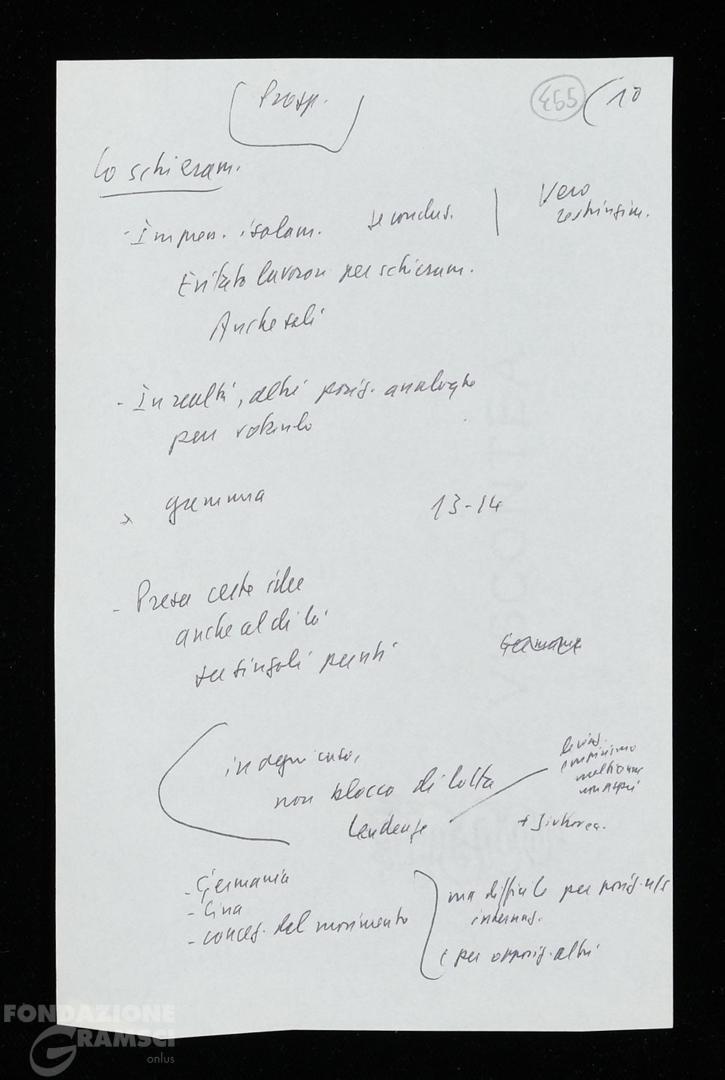 Prosp.
455 10
Lo schieram.
- Impres. isolam. se conclus. Vero
restringim.
Evitato lavorar per schieram.
Anche soli
- In realtà, altri posiz. analoghe
per
gramma 13-14
- Presa certe idee
anche al di là
su singoli punti Germania
in ogni caso,
non blocco di lotta
tendenze
+ Sinkorea.
- Germania
- Cina
- concez. del movimento
ma difficile per posiz. n/s
internaz.
e per opposiz. altri
FONDAZIONE
GRAMSCI
onlus